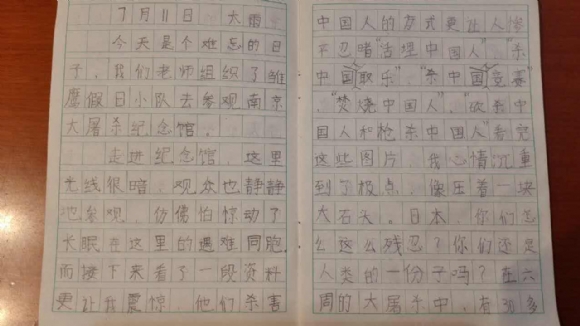 7月11日 大雷
今天是个难忘的日
子，我们老师组织了雏
鹰假日小队去参观南京
大屠杀纪念馆。
走进纪念馆，这里
光线很暗，观众也静静
地参观，仿佛怕惊动了
长眠在这里的遇难同胞，
而接下来看了一段资料
更让我震惊，他们杀害
中国人的方式更让人惨
不忍睹“活埋中国人”、“杀
中国取乐”、“杀中国竞赛”
、“焚烧中国人”、“砍杀中
国人和枪杀中国人”看完
这些图片，我心情沉重
到了极点，像压着一块
大石头。日本，你们怎
么这么残忍？你们还是
人类的一份子吗？在六
周的大屠杀中，有30多